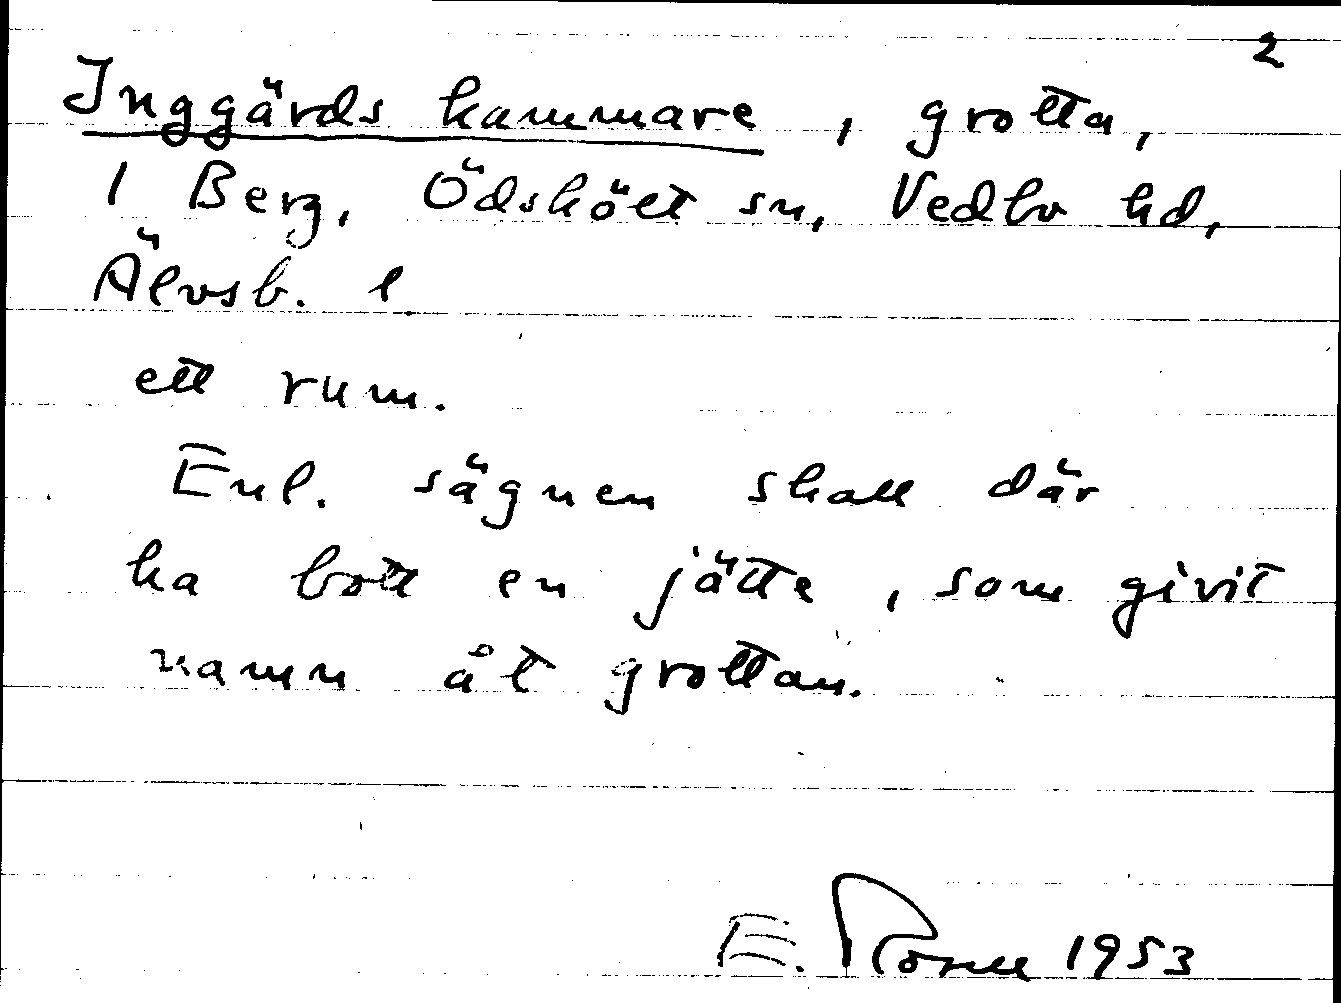 2
Inggärds kammare, grotta,
1 Berg, Ödsköлt sn, Vedbo hd,
Älvsb. l
ett rum.
Enl. sägnen skall där
ha bott en jätte, som givit
namn åt grottan.
E. 1953